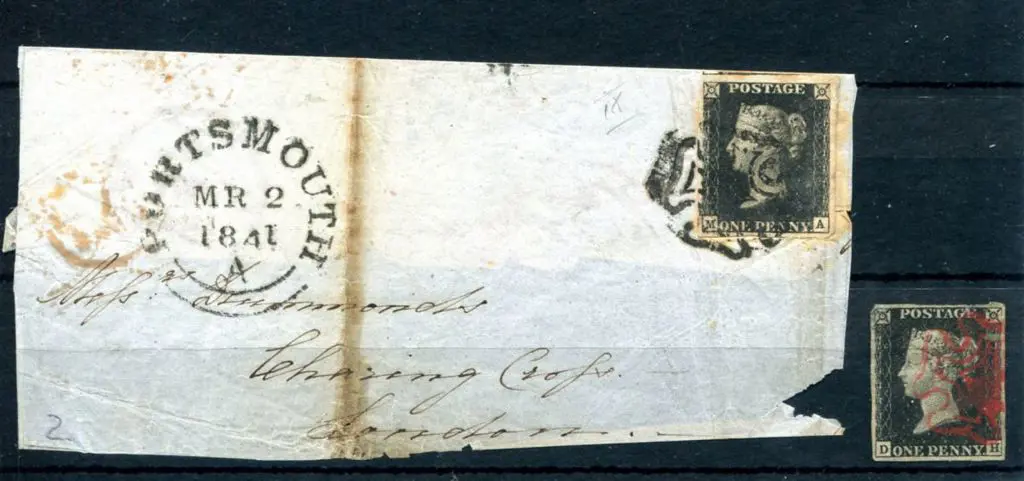 PORTSMOUTH
MR 2
1841
POSTAGE
M ONE PENNY A
Messrs Drummonds
Charing Cross.
London.
2
POSTAGE
D ONE PENNY. H